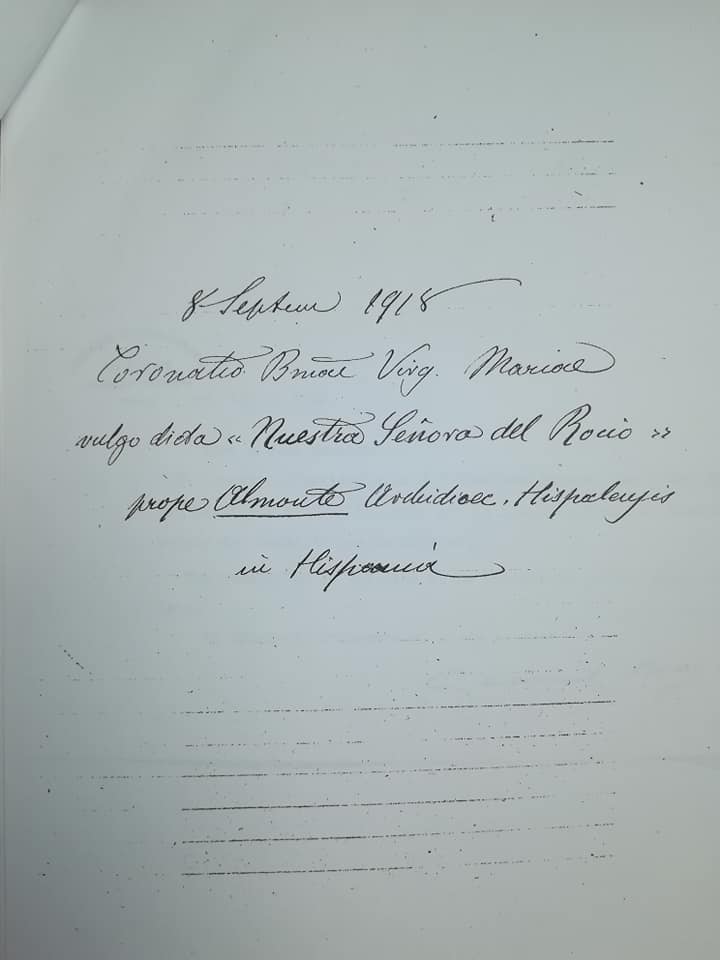 8 Septem 1918
Coronatio Bmae Virg. Mariae
vulgo dicta « Nuestra Señora del Rocio »
prope Almonte Archidioec. Hispalensis
in Hispania